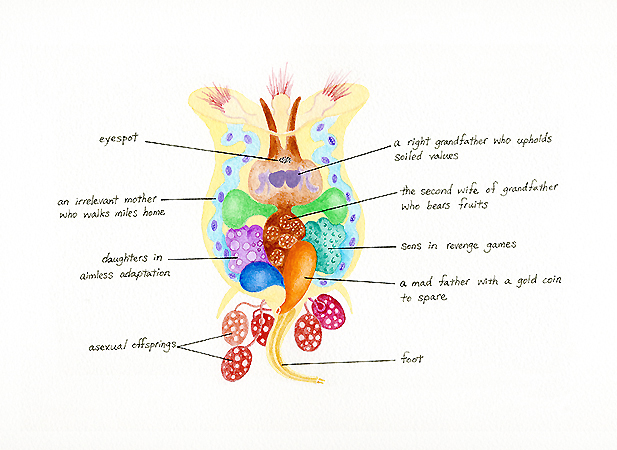 eyespot
an irrelevant mother
who walks miles home
daughters in
aimless adaptation
asexual offsprings
a right grandfather who upholds
soiled values
the second wife of grandfather
who bears fruits
sons in revenge games
a mad father with a gold coin
to spare
foot